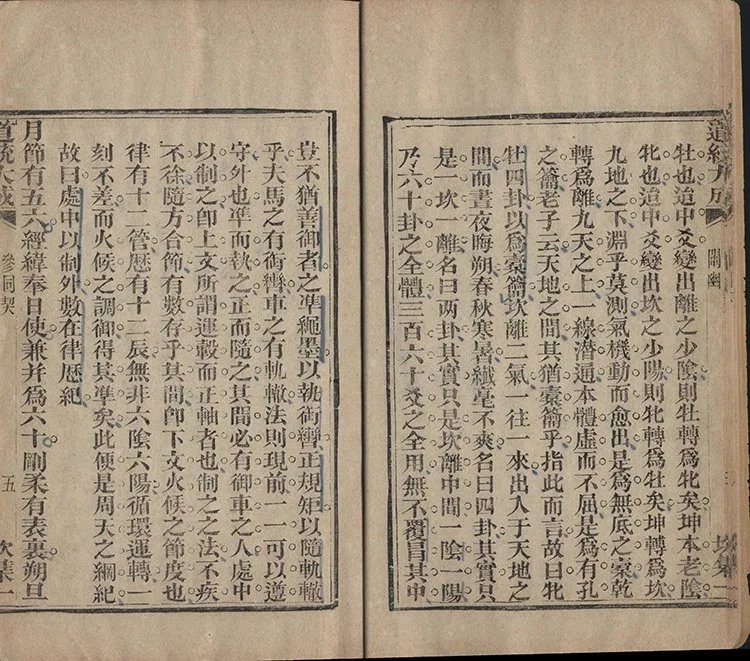 道統大成
闡幽
坎集一
牡也這中爻變出離之少陰則牡轉為牝矣坤本老陰
牝也這中爻變出坎之少陽則牝轉為牡矣坤轉為坎
九地之下淵乎莫測氣機動而愈出是為無底之橐乾
轉為離九天之上一線潛通本體虛而不屈是為有孔
之籥老子云天地之間其猶橐籥乎指此而言故曰牝
牡四卦以為橐籥坎離二氣一往一來出入于天地之
間而晝夜晦朔春秋寒暑纖毫不爽名曰四卦其實只
是一坎一離名曰兩卦其實只是坎離中間一陰一陽
乃六十卦之全體三百六十爻之全用無不覆冒其中
豈不猶善御者之準繩墨以執銜轡正規矩以隨軌轍
乎夫馬之有銜轡車之有軌轍法則現前一一可以遵
守外也準而執之正而隨之其間必有御車之人處中
以制之卽上文所謂運轂而正軸者也制之之法不疾
不徐隨方合節有數存乎其間卽下文火候之節度也
律有十二管歷有十二辰無非六陰六陽循環運轉一
刻不差而火候之調御得其準矣此便是周天之綱紀
故曰處中以制外數在律歷紀
月節有五六經緯奉日使兼并為六十剛柔有表裏朔旦
道統大成
參同契
五
坎集一